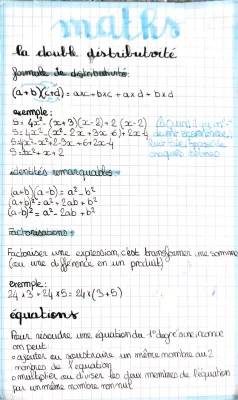 maths
la double distributivité
formule de distributivité:
(a+b)(c+d) = axc + bxc + axd + bxd
exemple:
S = 4x² - (x+3)(x-2) + 2(x-2)
S = 4x² - (x² - 2x + 3x
S = 4x² - x²
S =
identités remarquables
(a+b)(a-b) = a² - b²
(a+b)² = a² + 2ab + b²
(a-b)² = a² - 2ab + b²
Factorisations:
Factoriser une expression, c'est transformer une somme
(ou une différence en un produit)
exemple:
24 x 3 + 24 x 5 = 24 x (3+5)
équations
Pour resoudre une équation du 1er degré à une inconnue
on peut
• ajouter ou soustraire un même nombre au 2
membres de l'equation
• multiplier ou diviser les deux membres de l'équation
par un même nombre non nul